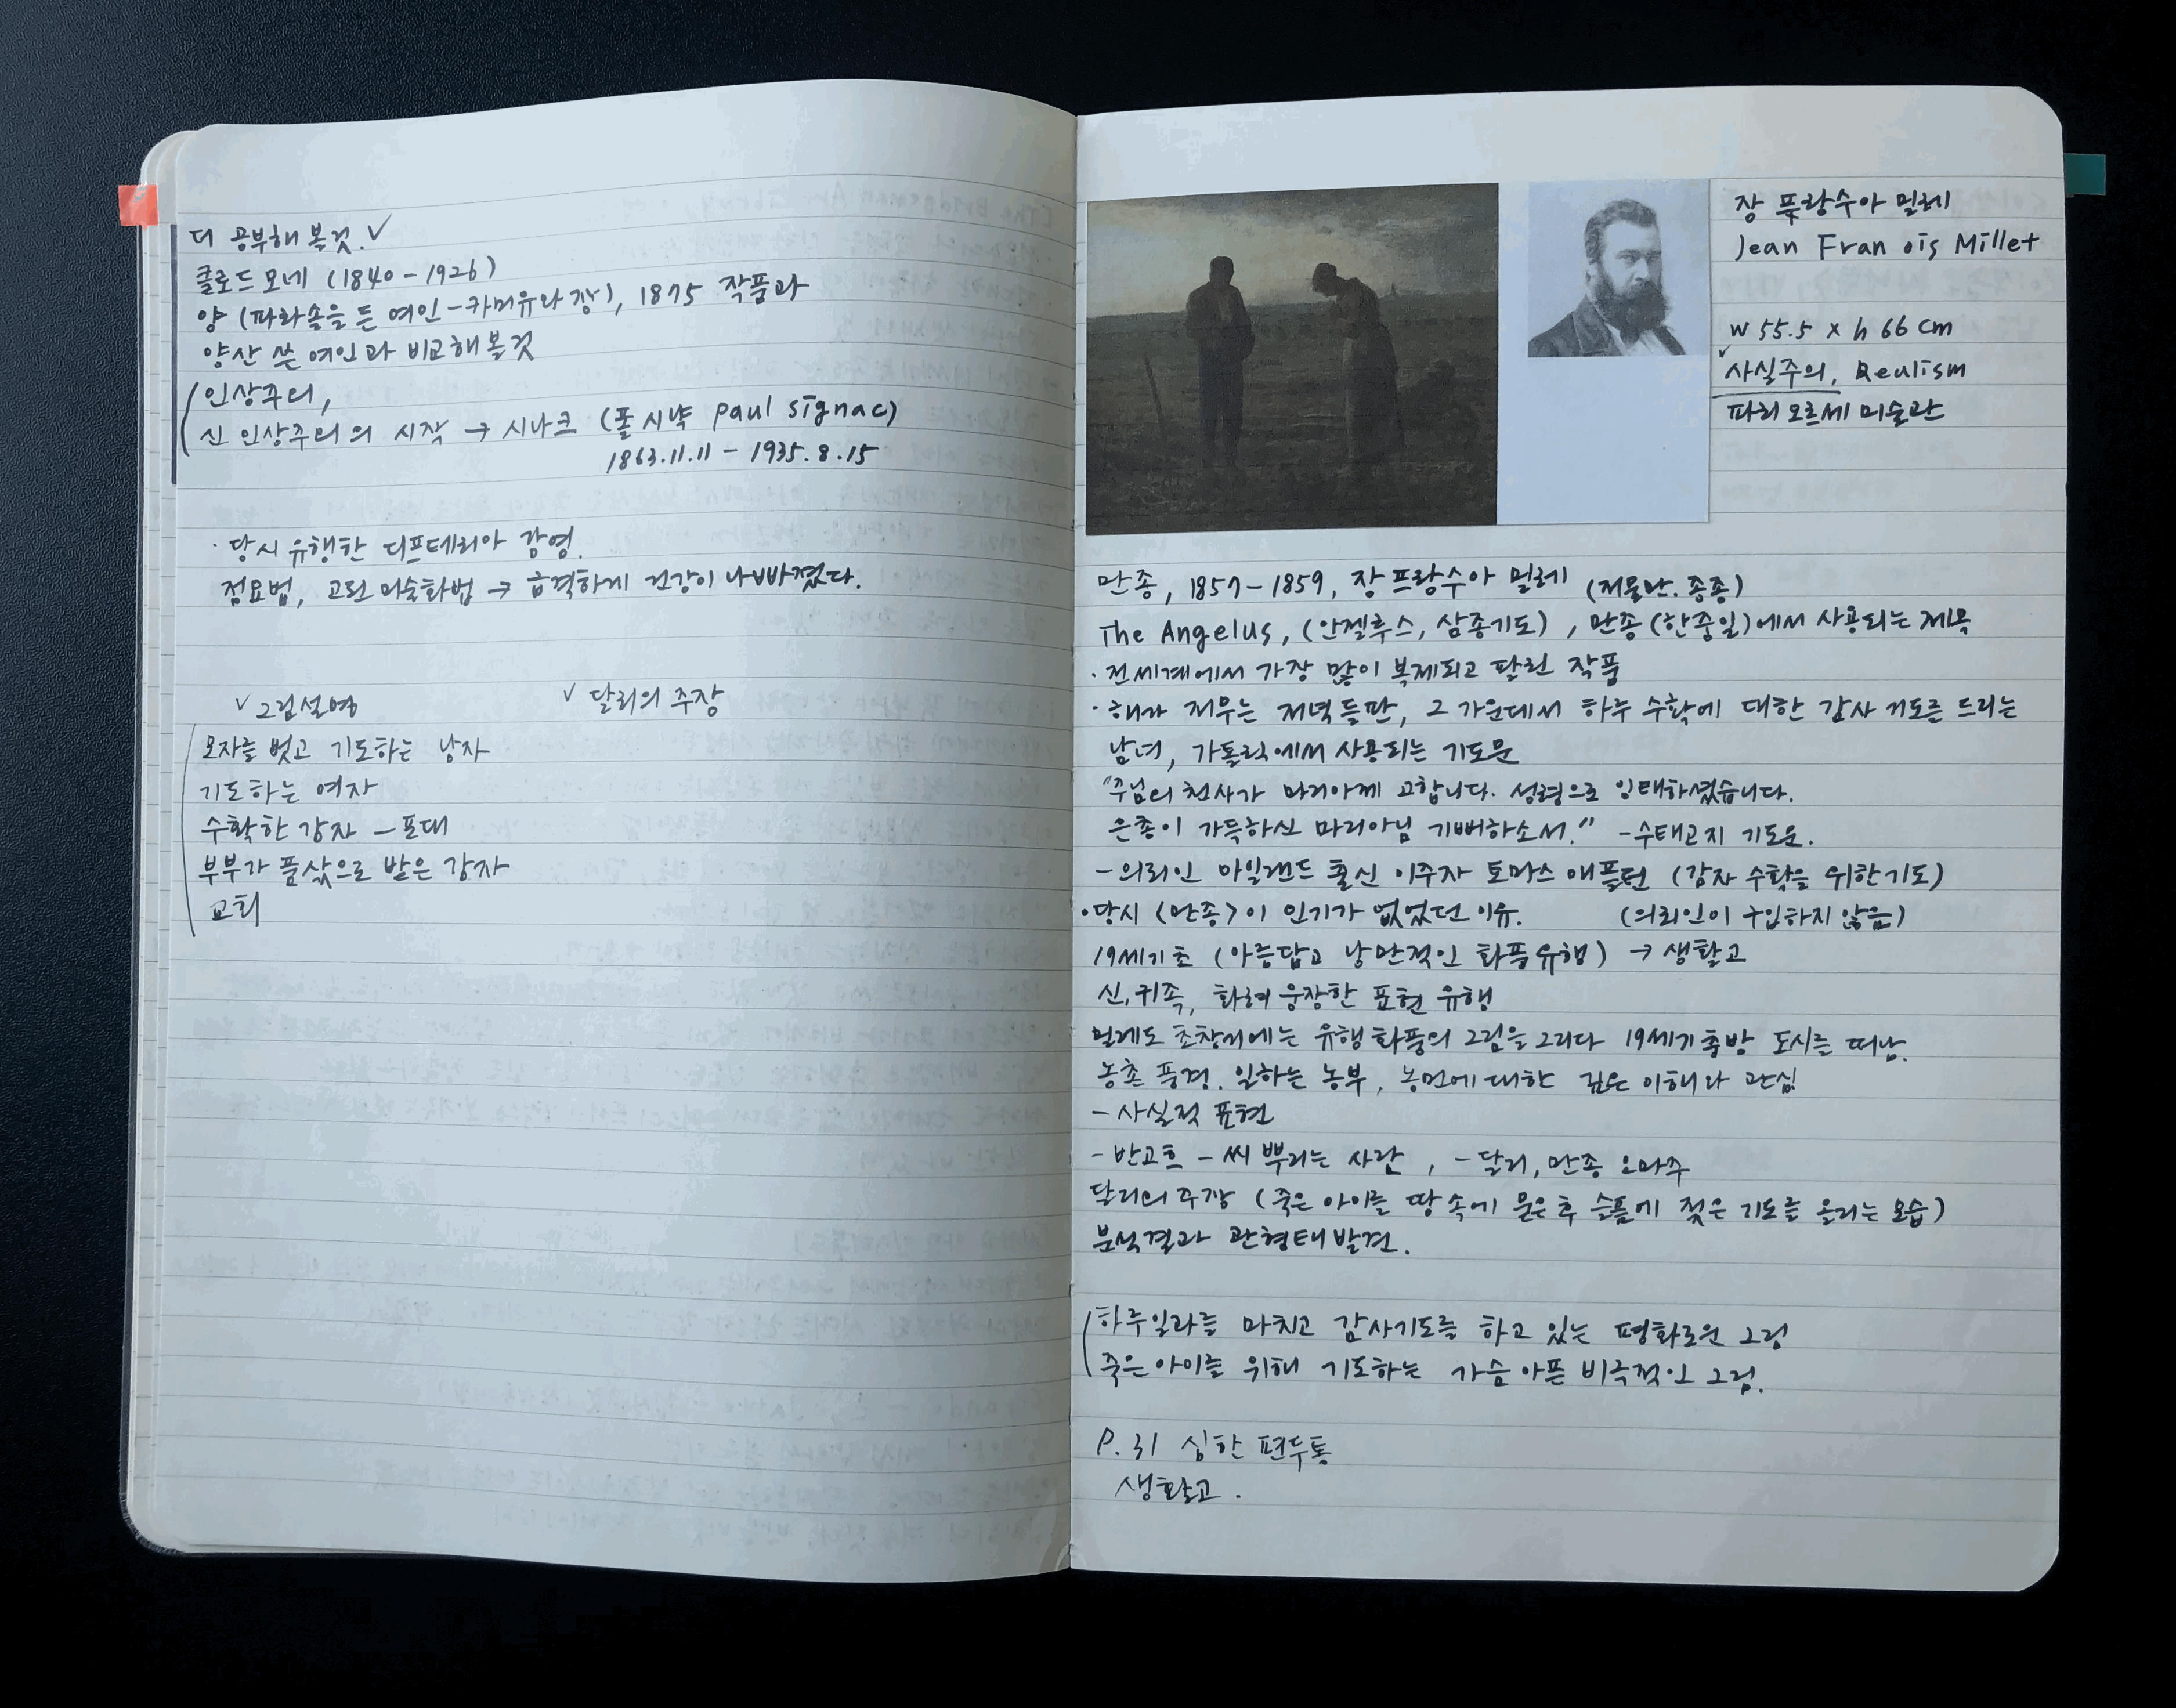 더 공부해 볼것.✓
클로드 모네 (1840-1926)
양 (파라솔을 든 여인-카미유와 장), 1875 작품과
양산 쓴 여인과 비교해볼것
인상주의,
신 인상주의의 시작 → 시냐크 (폴 시냑 paul signac)
1863.11.11 - 1935.8.15
· 당시 유행한 디프테리아 감영.
점묘법, 고된 미술화법 → 급격하게 건강이 나빠졌다.
✓그림설명
✓ 달리의 주장
모자를 벗고 기도하는 남자
기도하는 여자
수확한 감자 - 포대
부부가 품삯으로 받은 감자
교회
장 프랑수아 밀레
Jean Fran ois Millet
w 55.5 x h 66 cm
✓사실주의, Realism
파리 오르세 미술관
만종, 1857-1859, 장프랑수아 밀레 (저물만. 종종)
The Angelus, (안젤루스, 삼종기도), 만종(한중일)에서 사용되는 제목
· 전세계에서 가장 많이 복제되고 팔린 작품
· 해가 저무는 저녁들판, 그 가운데서 하루 수확에 대한 감사 기도를 드리는
남녀, 가톨릭에서 사용되는 기도문
"주님의 천사가 마리아께 고합니다. 성령으로 잉태하셨습니다.
은총이 가득하신 마리아님 기뻐하소서." -수태고지 기도문.
- 의뢰인 아일랜드 출신 이주자 토마스 애플턴 (감자 수확을 위한기도)
· 당시 <만종>이 인기가 없었던 이유. (의뢰인이 구입하지 않음)
19세기초 (아름답고 낭만적인 화풍유행) → 생활고
신, 귀족, 화려 웅장한 표현 유행
밀레도 초창기에는 유행화풍의 그림을 그리다 19세기중반 도시를 떠남.
농촌 풍경. 일하는 농부, 농민에 대한 깊은 이해와 관심
- 사실적 표현
- 반고흐 - 씨 뿌리는 사람, - 달리, 만종 오마주
달리의 주장 (죽은 아이를 땅속에 묻은 후 슬픔에 젖은 기도를 올리는 모습)
분석결과 관형태 발견.
하루일과를 마치고 감사기도를 하고 있는 평화로운 그림
죽은아이를 위해 기도하는 가슴아픈 비극적인 그림.
P. 31 심한 편두통
생활고.